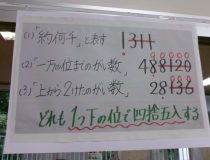 (1)「約何千」と表す 1311
(2)「一万の位までのがい数」 488120
(3)「上から2けたのがい数」 28136
どれも1つ下の位で四捨五入する